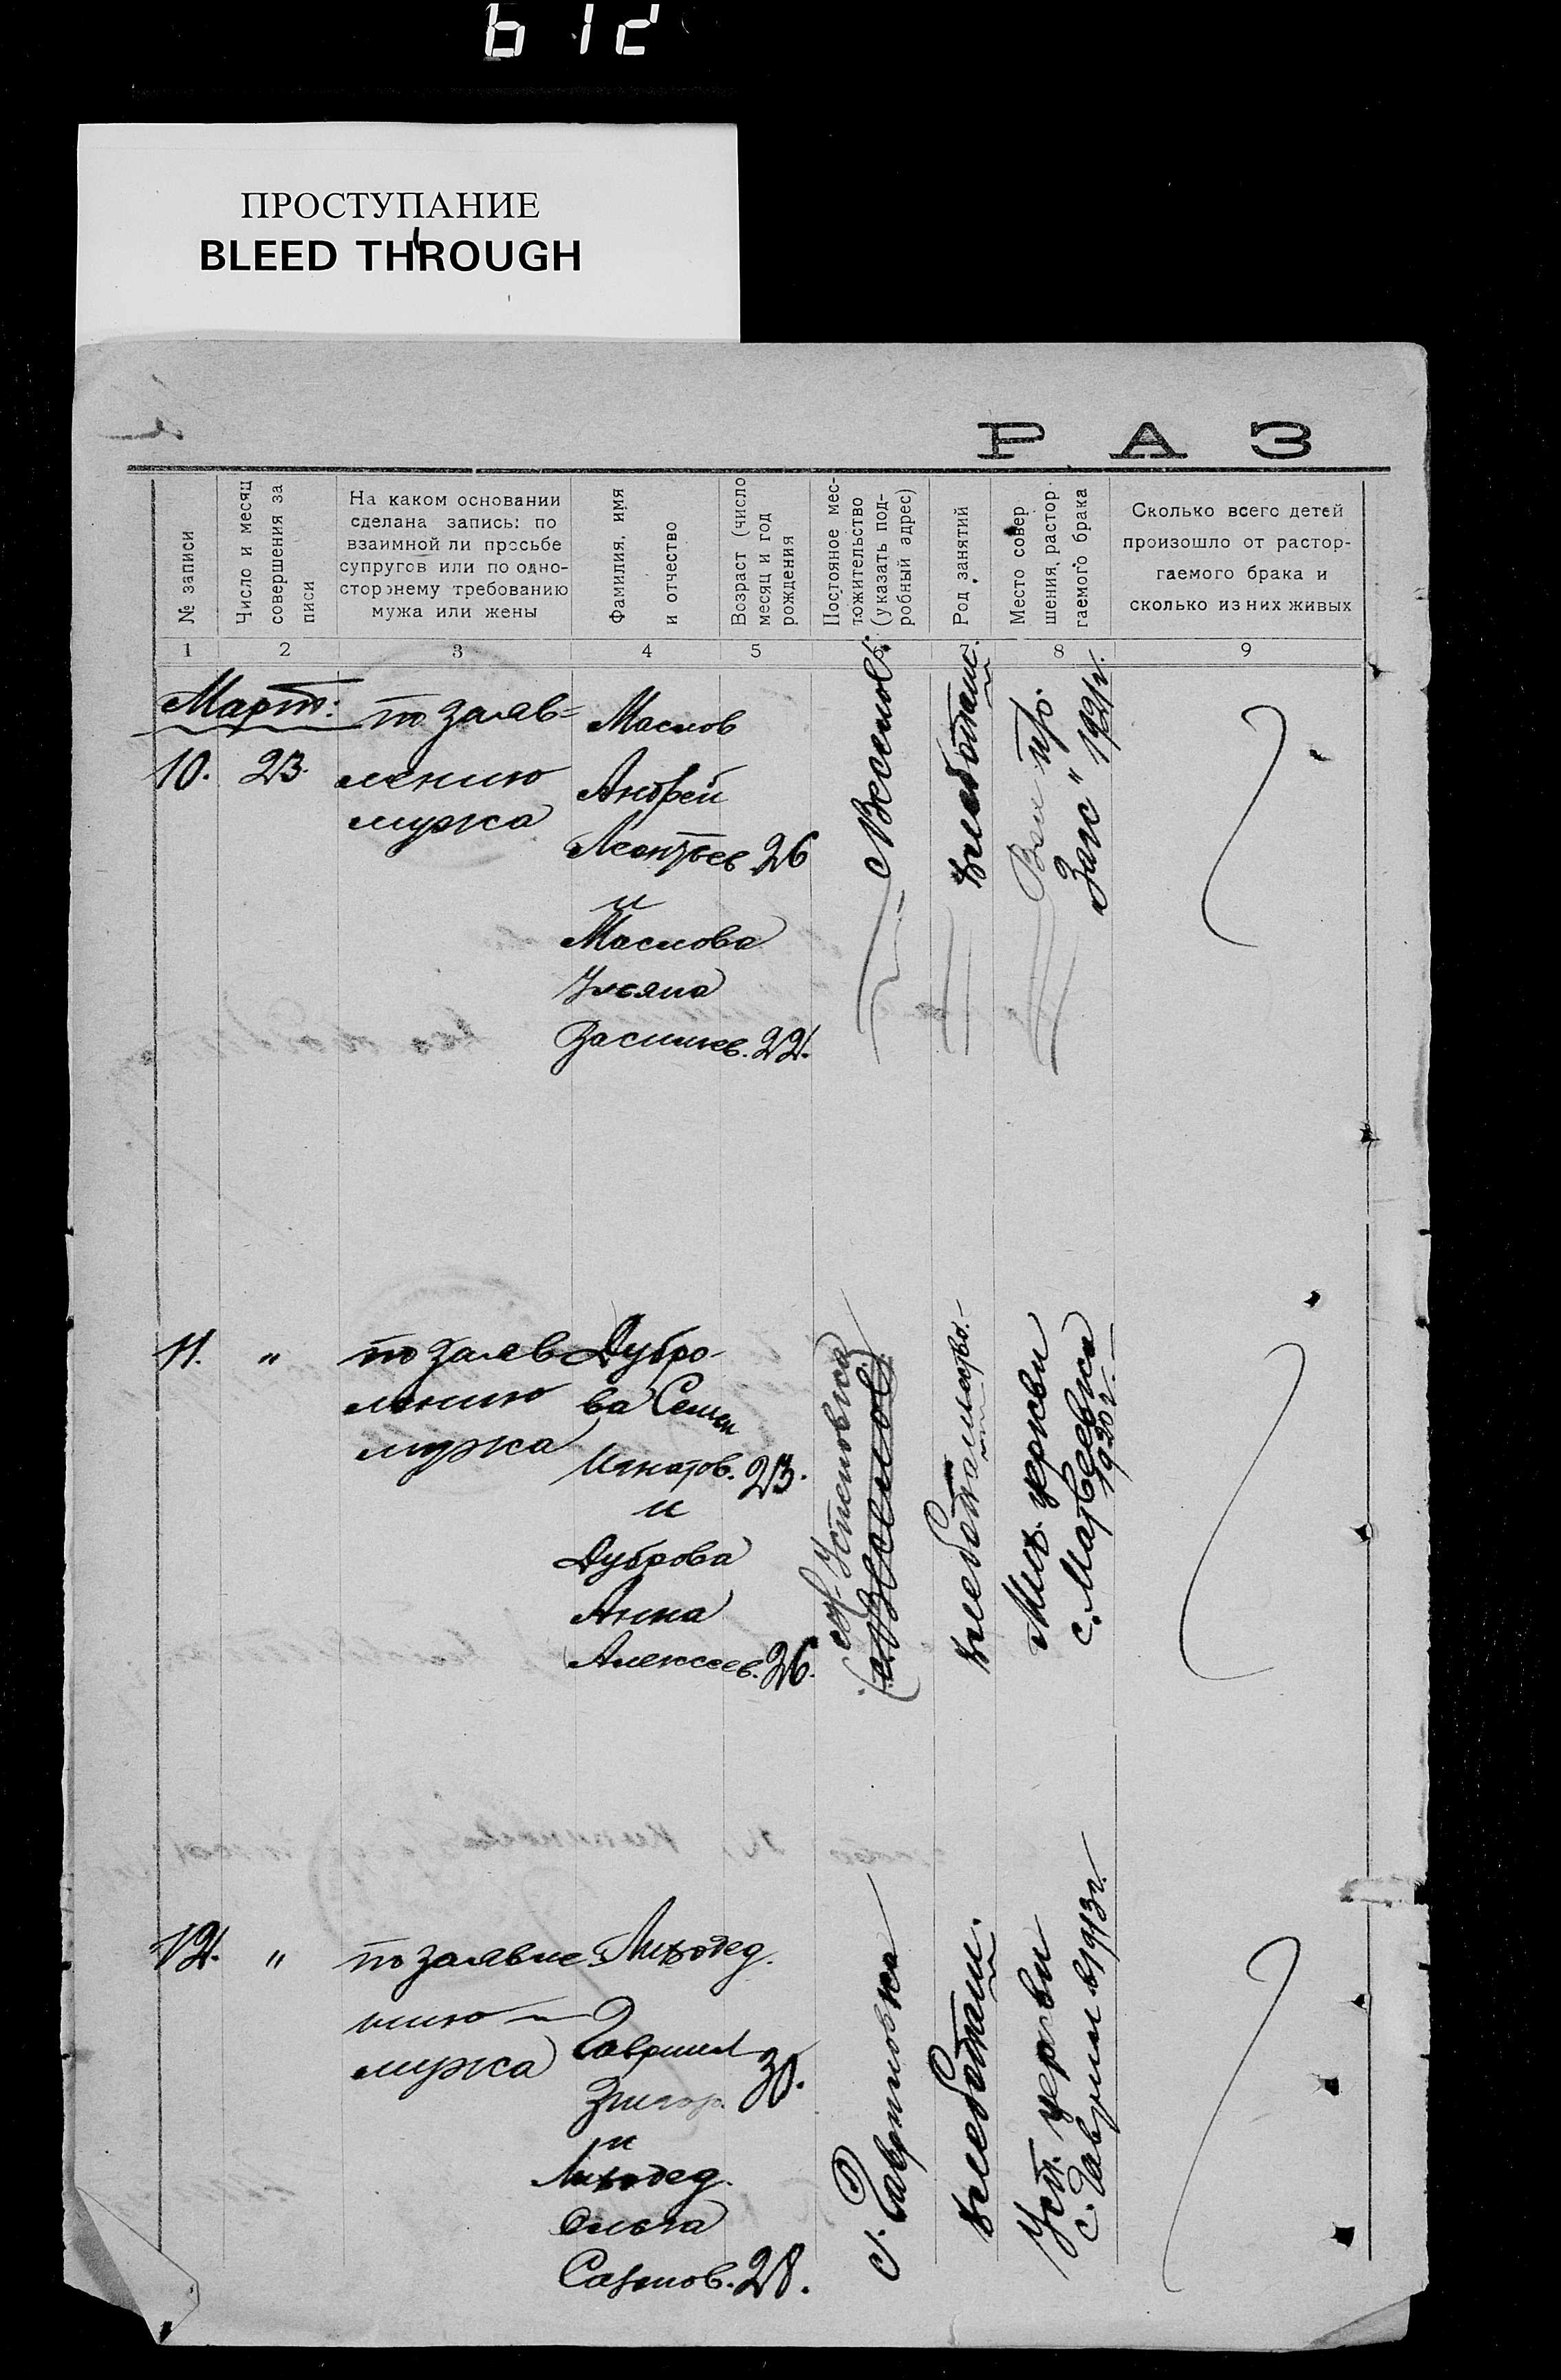 612
ПРОСТУПАНИЕ
BLEED THROUGH
РАЗ
№ записи
Число и месяц
совершения за
писи
На каком основании
сделана запись: по
взаимной ли просьбе
супругов или по одно-
стороннему требованию
мужа или жены
Фамилия, имя
и отчество
Возраст (число
месяц и год
рождения
Постоянное мес-
тожительство
(указать под-
робный адрес)
Род занятий
Место совер
шения, растор.
гаемого брака
Сколько всего детей
произошло от растор-
гаемого брака и
сколько из них живых
1 2 3 4 5 6 7 8 9
Март:
10. 23.
по заяв-
лению
мужа
Маслов
Андрей
Леонтьев 26
и
Маслова
Ульяна
Василев. 22.
хлебопаш.
Загс" 1921г.
11. "
по заяв
лению
мужа
Дубро-
ва Семен
Игнатов. 23.
и
Дуброва
Анна
Алексеев. 26.
Успеновка
Мих. церкви
с. Матвеевка
1920 г.
12. "
по заявле
нию
мужа
Лиходед.
Гавриил
Григор. 30.
и
Лиходед.
Ольга
Сазонов. 28.
с. Гавриловка
хлебопаш.
Усп. церкви
с. Гаврил в 1913г.